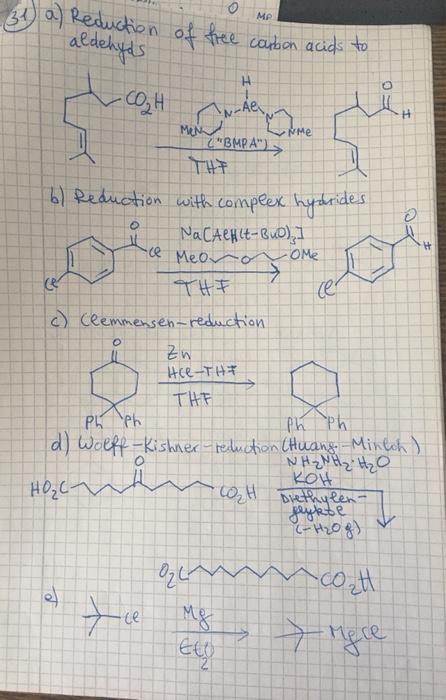 31 a) Reduction of free carbon acids to
aldehyds
CO₂H
H
N-Al-N
MeN
NMe
("BMPA")
THF
O
H
b) Reduction with complex hydrides
O
Cl
Cl
Na[AlH(t-BuO)₃]
MeO O OMe
THF
O
H
Cl
c) Clemmensen-reduction
O
Ph Ph
Zn
HCl-THF
THF
Ph Ph
d) Wolff-Kishner-reduction (Huang-Minloh)
HO₂C
O
CO₂H
NH₂NH₂·H₂O
KOH
Diethylen-
(-H₂O g)
O₂C
CO₂H
e)
Cl
Mg
Et₂O
MgCl